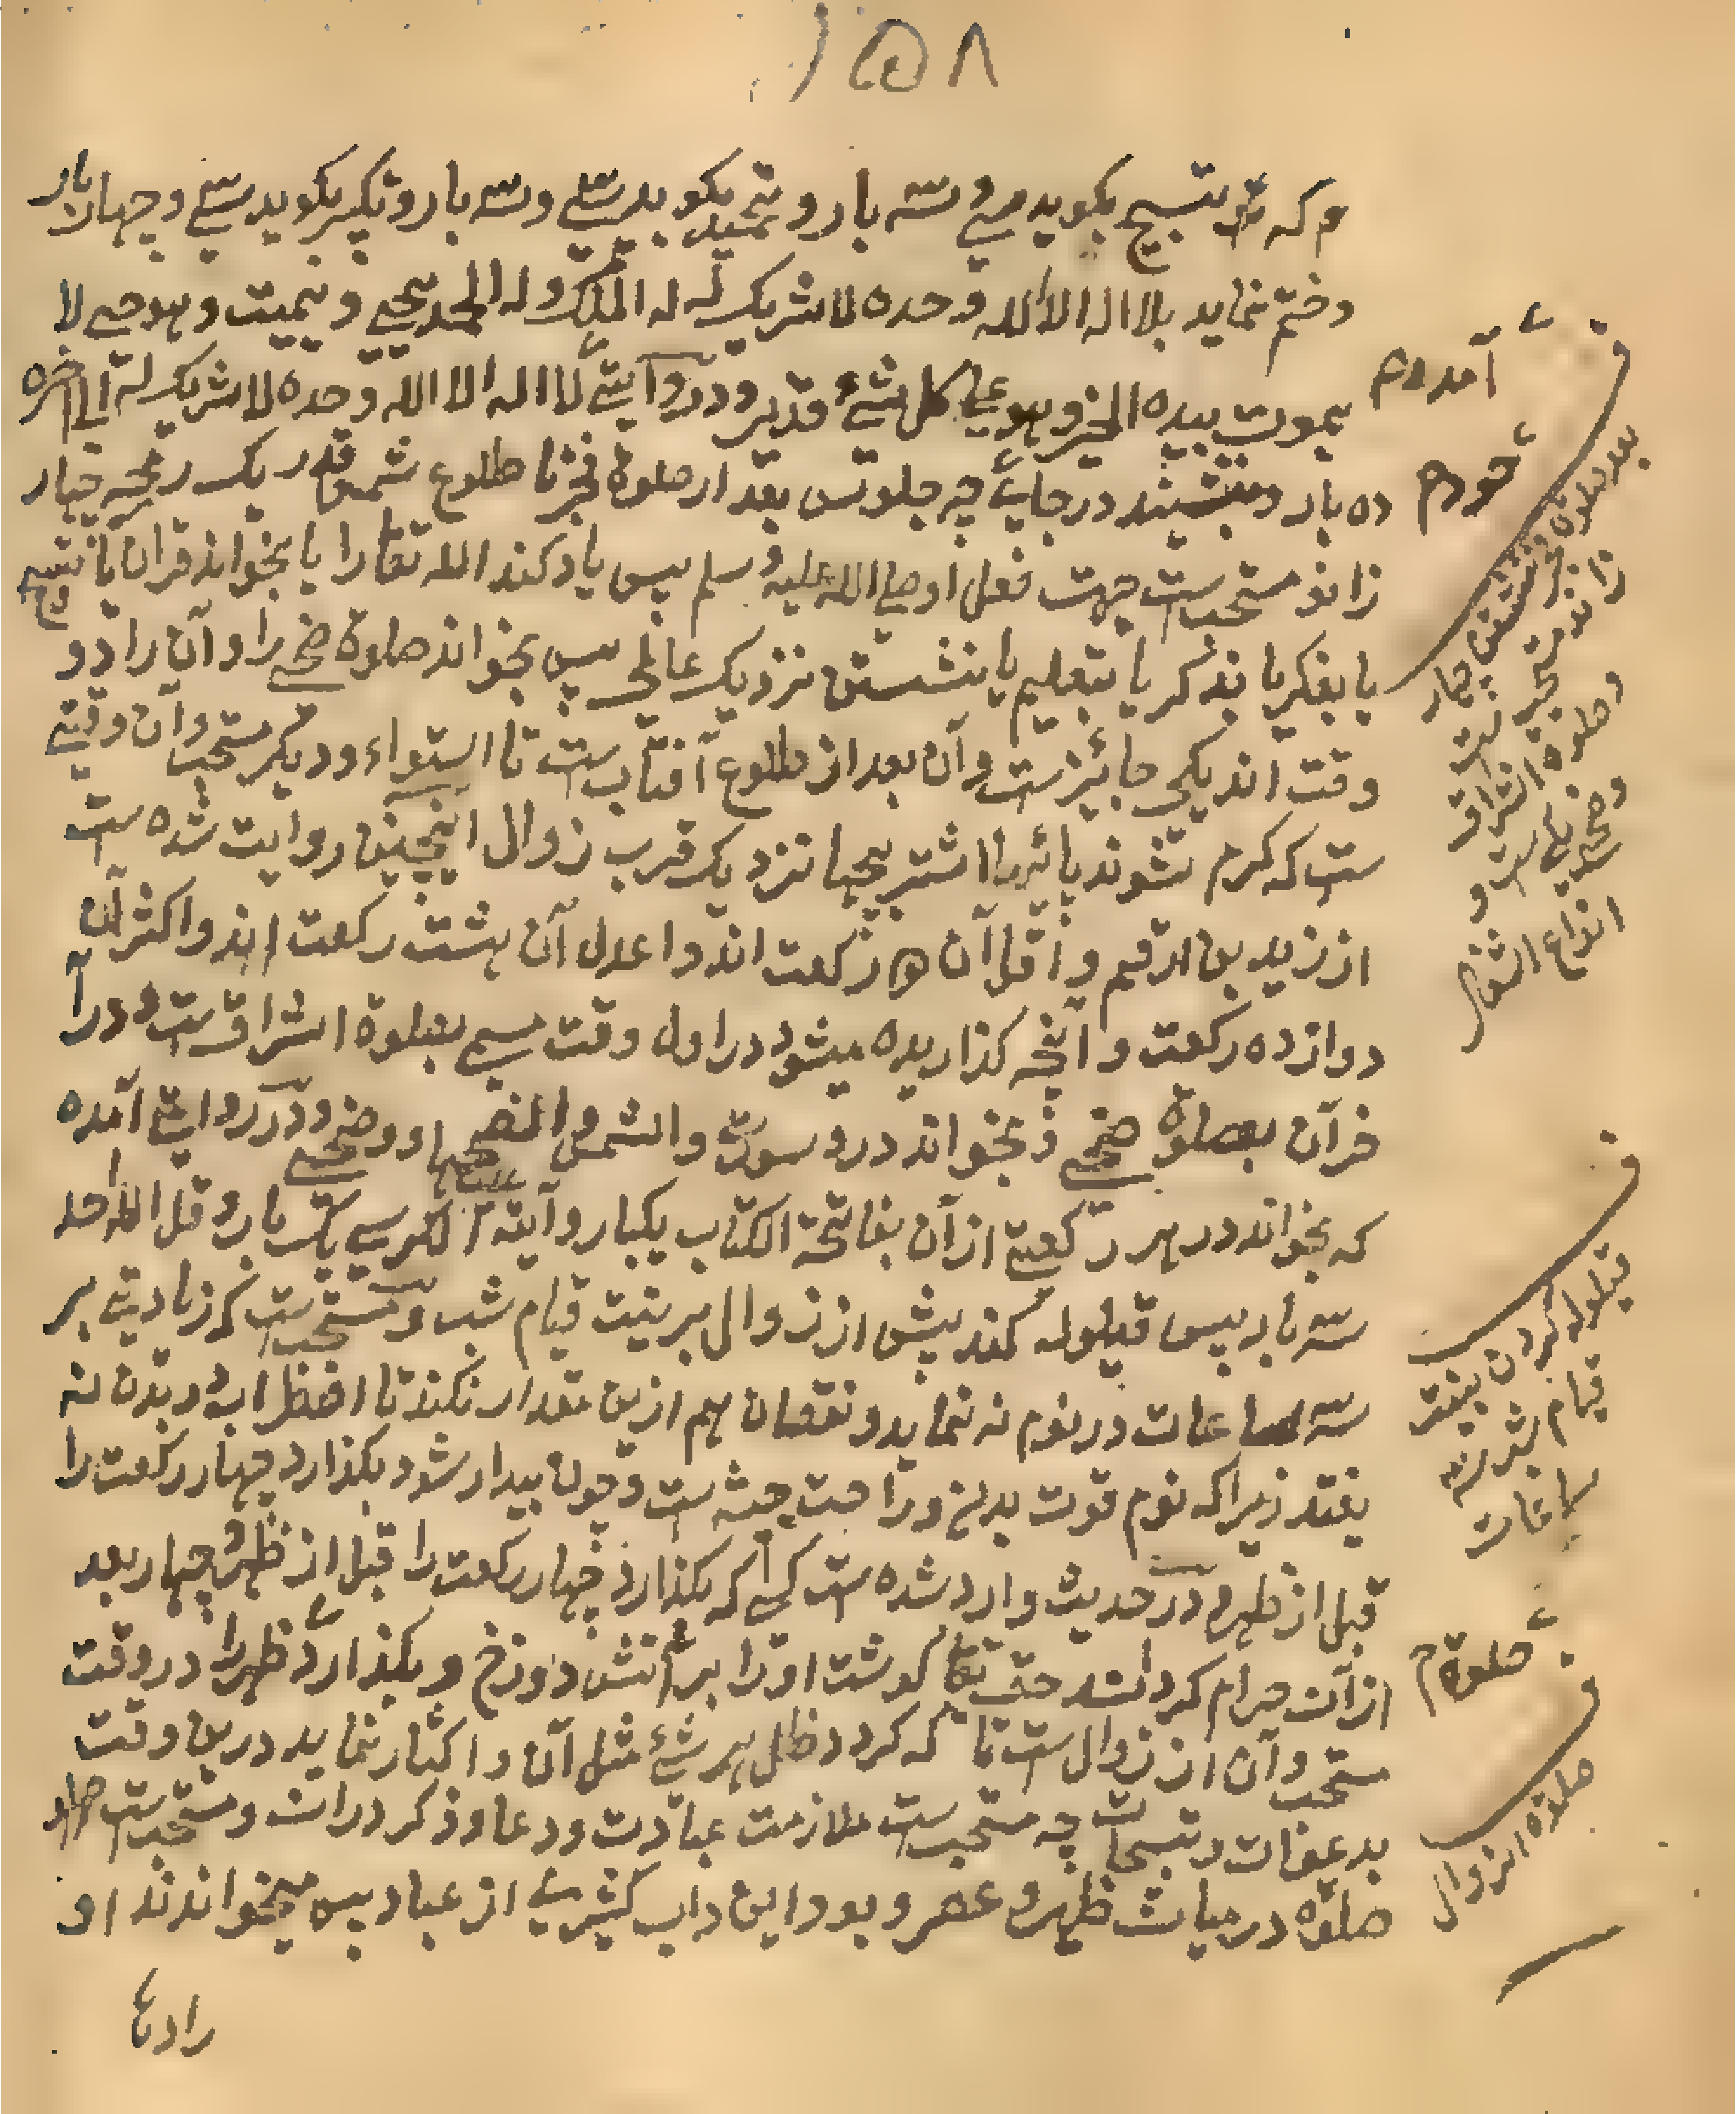 ١٥٨
تسبیح بکوید سی و سه بار و تحمید بکوید سی و سه بار و تکبیر بکوید سی و چهار بار
وختم نماید بلا اله الا الله وحده لا شریک له له الملک وله الحمد یحیی و یمیت و هو حی لا
یموت بیده الخیر و هو علی کل شیٔ قدیر و در روایتی لا اله الا الله وحده لا شریک له الی اخره
ده بار و بنشیند در جای چه جلوس بعد از صلوة فجر تا طلوع شمس قدر یک رمحه چهار
زانو مستحب ست جهت فعل او صلی الله علیه و سلم پس یاد کند الله تعا را یا بخواند قران یا تسبیح
یا بفکر یا بذکر یا بتعلیم یا بنشستن نزدیک عالمی پس بخواند صلوة ضحی را و آن را دو
وقت اند یکی جائیز ست و آن بعد از طلوع آفتاب ست تا استواء و دیکر مستحب و آن وقتی
ست که کرم شوند پائیها اشتر بچها نزدیک قرب زوال اینچنین روایت شده ست
از زید بن ارقم و اقل آن دو رکعت اند و اعدل آن هشت رکعت اند و اکثر آن
دوازده رکعت و آنچه کذاریده میشود در اول وقت مسمی بصلوة اشراق ست و در آ
خر آن بصلوة ضحی و بخواند درو سورت و الشمس و الضحی و در روایتی آمده
که بخواند در هر رکعتی از آن بفاتحة الکتاب یکبار و آیة الکرسی یک بار و قل الله احد
سه بار پس قیلوله کند پیش از زوال بر نیت قیام شب و مستحب ست که زیادتی بر
سه ساعات در نوم نه نماید و نقصان هم ازین مقدار نکند تا اضطراب در بدن نه
یفتد زیرا که نوم قوت بدن و راحت جثه ست و چون بیدار شود بکذارد چهار رکعت را
قبل از ظهر و در حدیث وارد شده ست کسی که بکذارد چهار رکعت را قبل از ظهر و چهار بعد
از آن حرام کرداند حق تعا کوشت او را بر آتش دوزخ و بکذارد ظهر را در وقت
مستحب و آن از زوال ست تا که کردد ظل هر شئ مثل آن و اکثار نماید درین وقت
بدعوات و تسبیحات چه مستحب ست ملازمت عبادت و دعا و ذکر در ان و مستحب ست
صلوة در میان ظهر و عصر و بود این داب کثیری از عباد پس میخواندند او
را در
آمده
بعد صلوة فجر نشستن چهار
زانو مستحب است
و صلوة اشراق
انواع
قیلوله کردن بنیت
قیام شب سه
ساعات
صلوة
صلوة الزوال